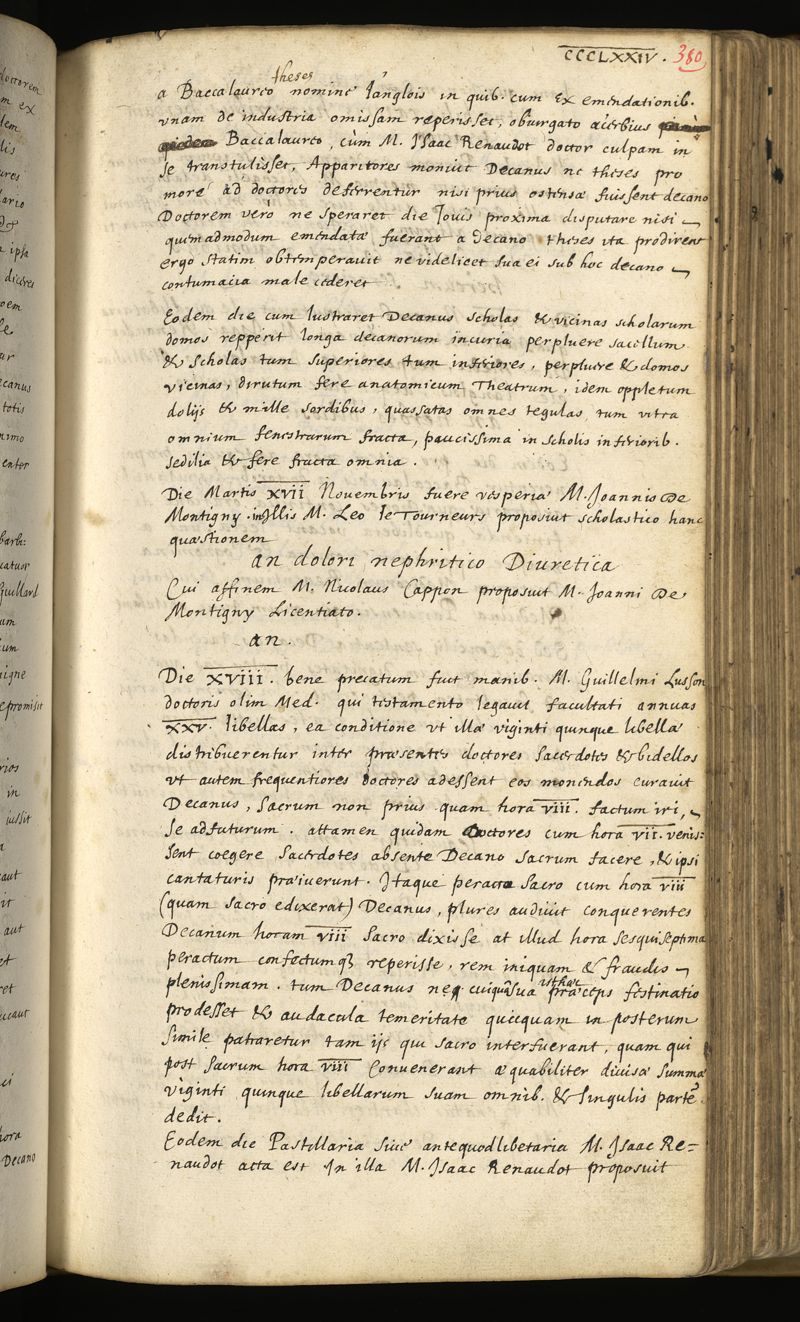 CCCLXXIV. 380
theses
a Baccalaureo nomine Langlois in quib. cum ex emendationib.
vnam de industria omissam reperisset, obiurgato acerbius
Baccalaureo, cùm M. Isaac Renaudot doctor culpam in
se transtulisset, Apparitores monuit Decanus ne theses pro
more ad doctores deferrentur nisi prius ostensæ fuissent decano
Doctorem verò ne speraret die Jouis proxima disputare nisi
quemadmodum emendatæ fuerant a Decano theses ita prodirent
ergo statim obtemperauit ne videlicet sua ei sub hoc decano
contumacia male cederet
Eodem die cum lustraret Decanus scholas & vicinas scholarum
domos repperit longa decanorum incuria perpluere sacellum
& scholas tum superiores tum inferiores, perpluere & domos
vicinas, dirutum fere anatomicum Theatrum, idem oppletum
dolijs & mille sordibus, quassatas omnes tegulas, tum vitra
omnium fenestrarum fracta, paucissima in scholis inferiorib.
sedilia & fere fracta omnia.
Die Martis XVII Nouembris fuere vesperiæ M. Joannis De
Montigny. in illis M. Leo le Tourneurs proposuit scholastico hanc
quæstionem
an dolori nephritico Diuretica
Cui affinem M. Nicolaus Cappon proposuit M. Joanni De
Montigny Licentiato.
an.
Die XVIII. bene precatum fuit manib. M. Guillelmi Lusson
doctoris olim Med. qui testamento legauit facultati annuas
XXV. libellas, ea conditione vt illæ viginti quinque libellæ
distribuerentur inter præsentes doctores sacerdotes & bidellos
vt autem frequentiores doctores adessent eos monendos curauit
Decanus, sacrum non prius quam hora VIII. factum iri,
se adfuturum. attamen quidam doctores cum hora VII. venis=
sent coegere sacerdotes absente Decano sacrum facere, & ipsi
cantaturis præiuerunt. Itaque peracto sacro cum hora VIII
(quam sacro edixerat) Decanus, plures audiuit conquerentes
Decanum horam VIII sacro dixisse at illud hora sesquiseptima
peractum confectumq3 reperisse, rem iniquam & fraudis
plenissimam. tum Decanus neq cuiquā sua isthæc præceps festinatio
prodesset & audacula temeritate quicquam in posterum
simile patraretur tam ijs qui sacro interfuerant, quam qui
post sacrum hora VIII Conuenerant æquabiliter diuisa summa
viginti quinque libellarum suam omnib. & singulis partē
dedit.
Eodem die Pastillaria siue antequodlibetaria M. Isaac Re=
naudot acta est In illa M. Isaac Renaudot proposuit